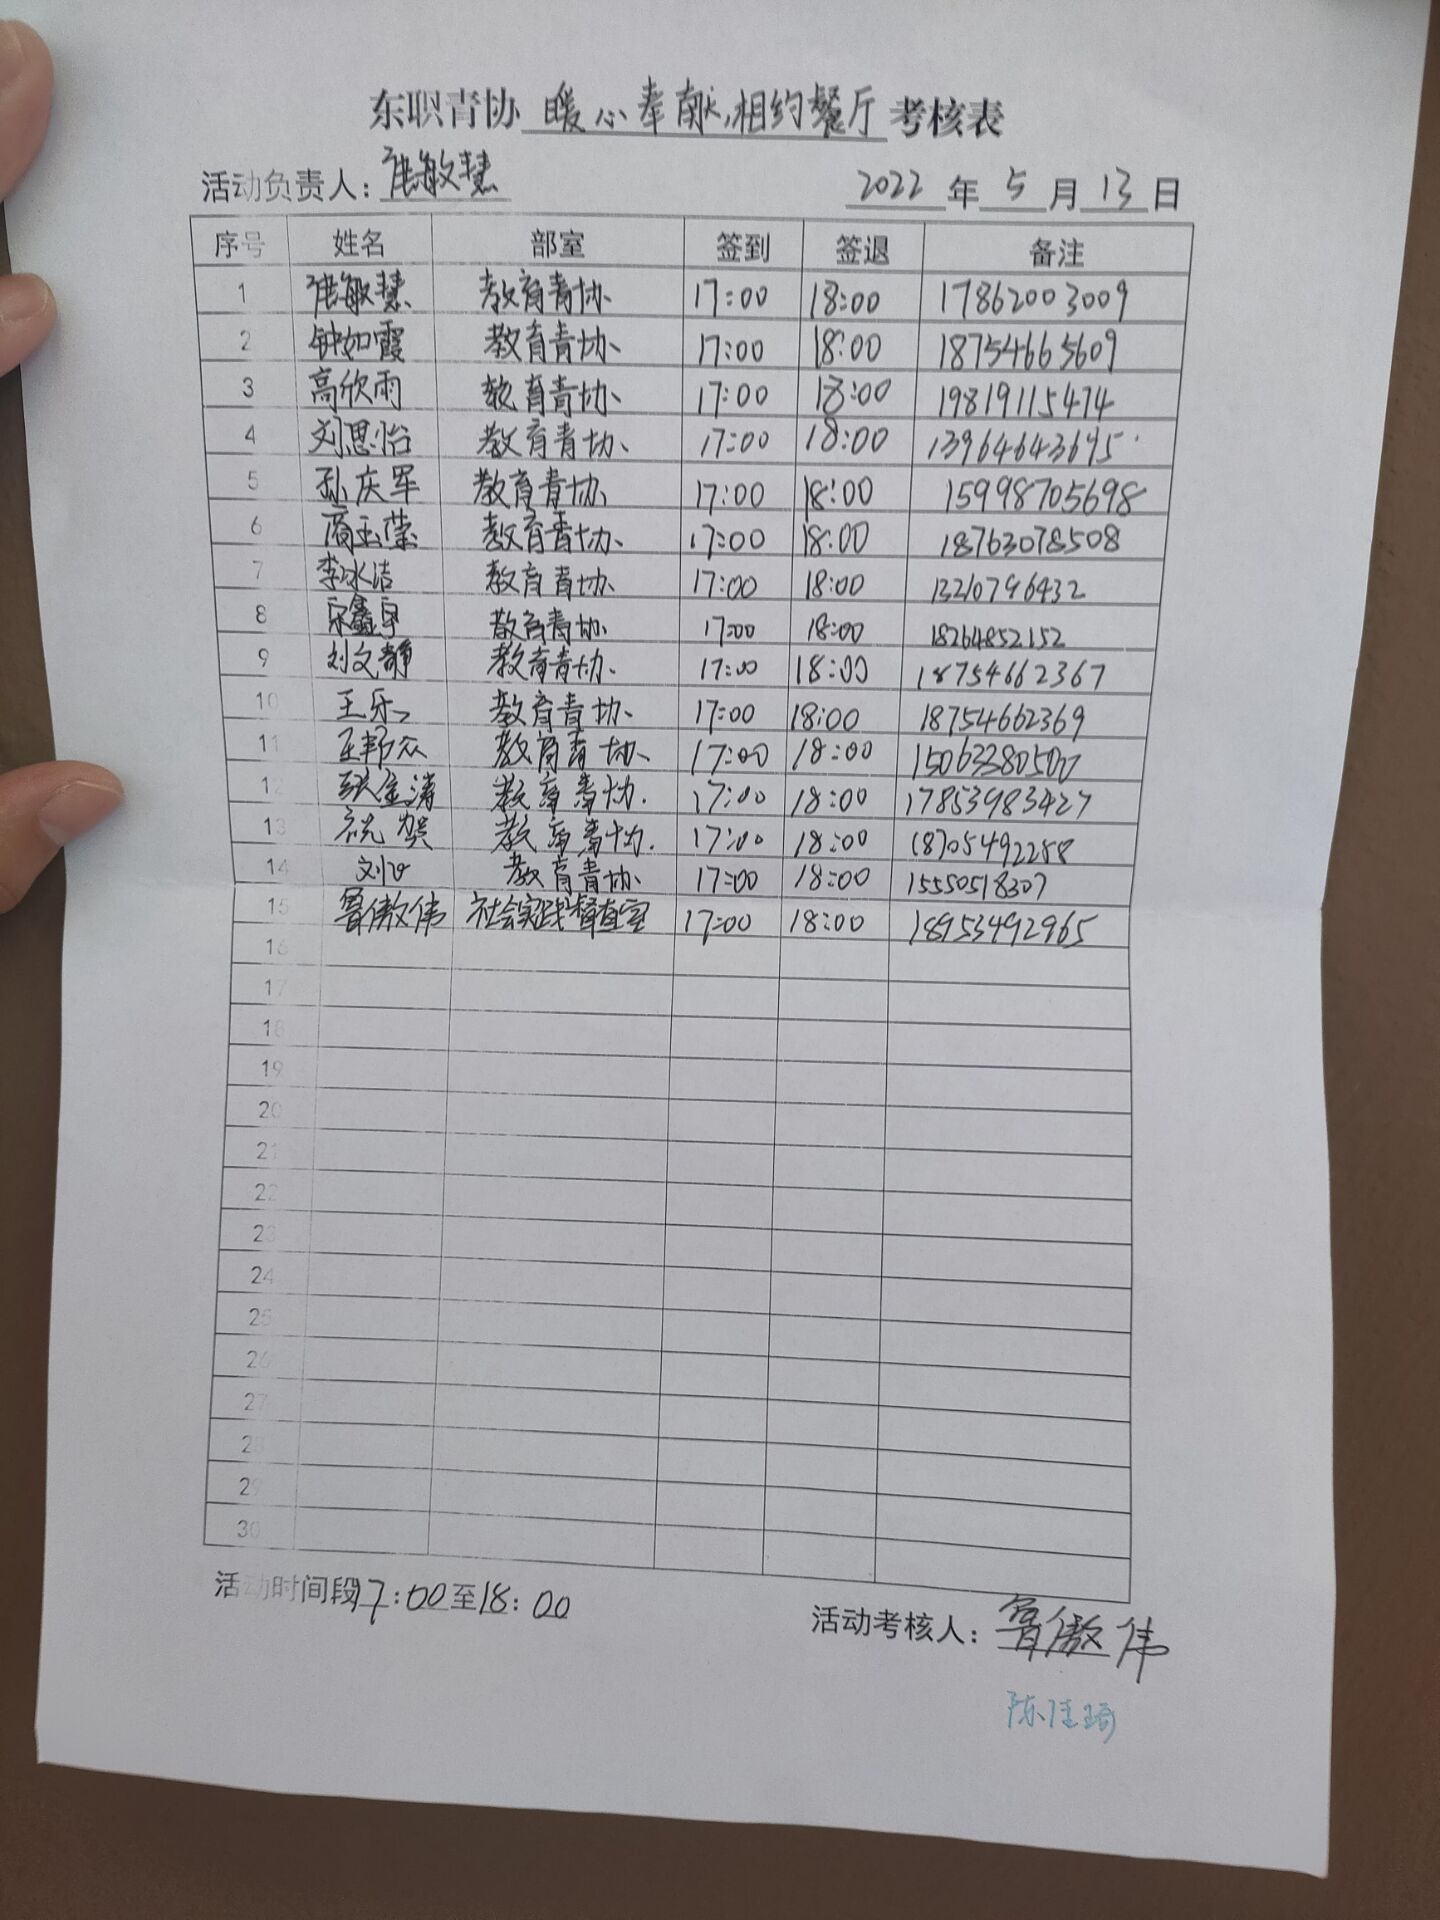 东职青协 暖心奉献,相约餐厅 考核表
活动负责人: 敏慧 2022 年 5 月 13 日
序号 姓名 部室 签到 签退 备注
1 敏慧 教育青协 17:00 18:00 17862003009
2 钟如霞 教育青协、 17:00 18:00 18754665609
3 高欣雨 教育青协、 17:00 18:00 19819115474
4 刘思怡 教育青协、 17:00 18:00 13964643695
5 孙庆军 教育青协、 17:00 18:00 15998705698
6 商玉莹 教育青协、 17:00 18:00 18763078508
7 李冰洁 教育青协. 17:00 18:00 13210796432
8 宋鑫宇 教育青协. 17:00 18:00 18264852152
9 刘文静 教育青协. 17:00 18:00 18754662367
10 王乐 教育青协、 17:00 18:00 18754662369
11 王邦众 教育青协、 17:00 18:00
12 张金涛 教育青协. 17:00 18:00 17853983427
13 祝贺 教育青协. 17:00 18:00 18705492258
14 刘 教育青协、 17:00 18:00 15550518307
15 鲁傲伟 社会实践督查室 17:00 18:00 18953492965
16
17
18
19
20
21
22
23
24
25
26
27
28
29
30
活动时间段17:00至18:00
活动考核人: 鲁傲伟
陈佳琦